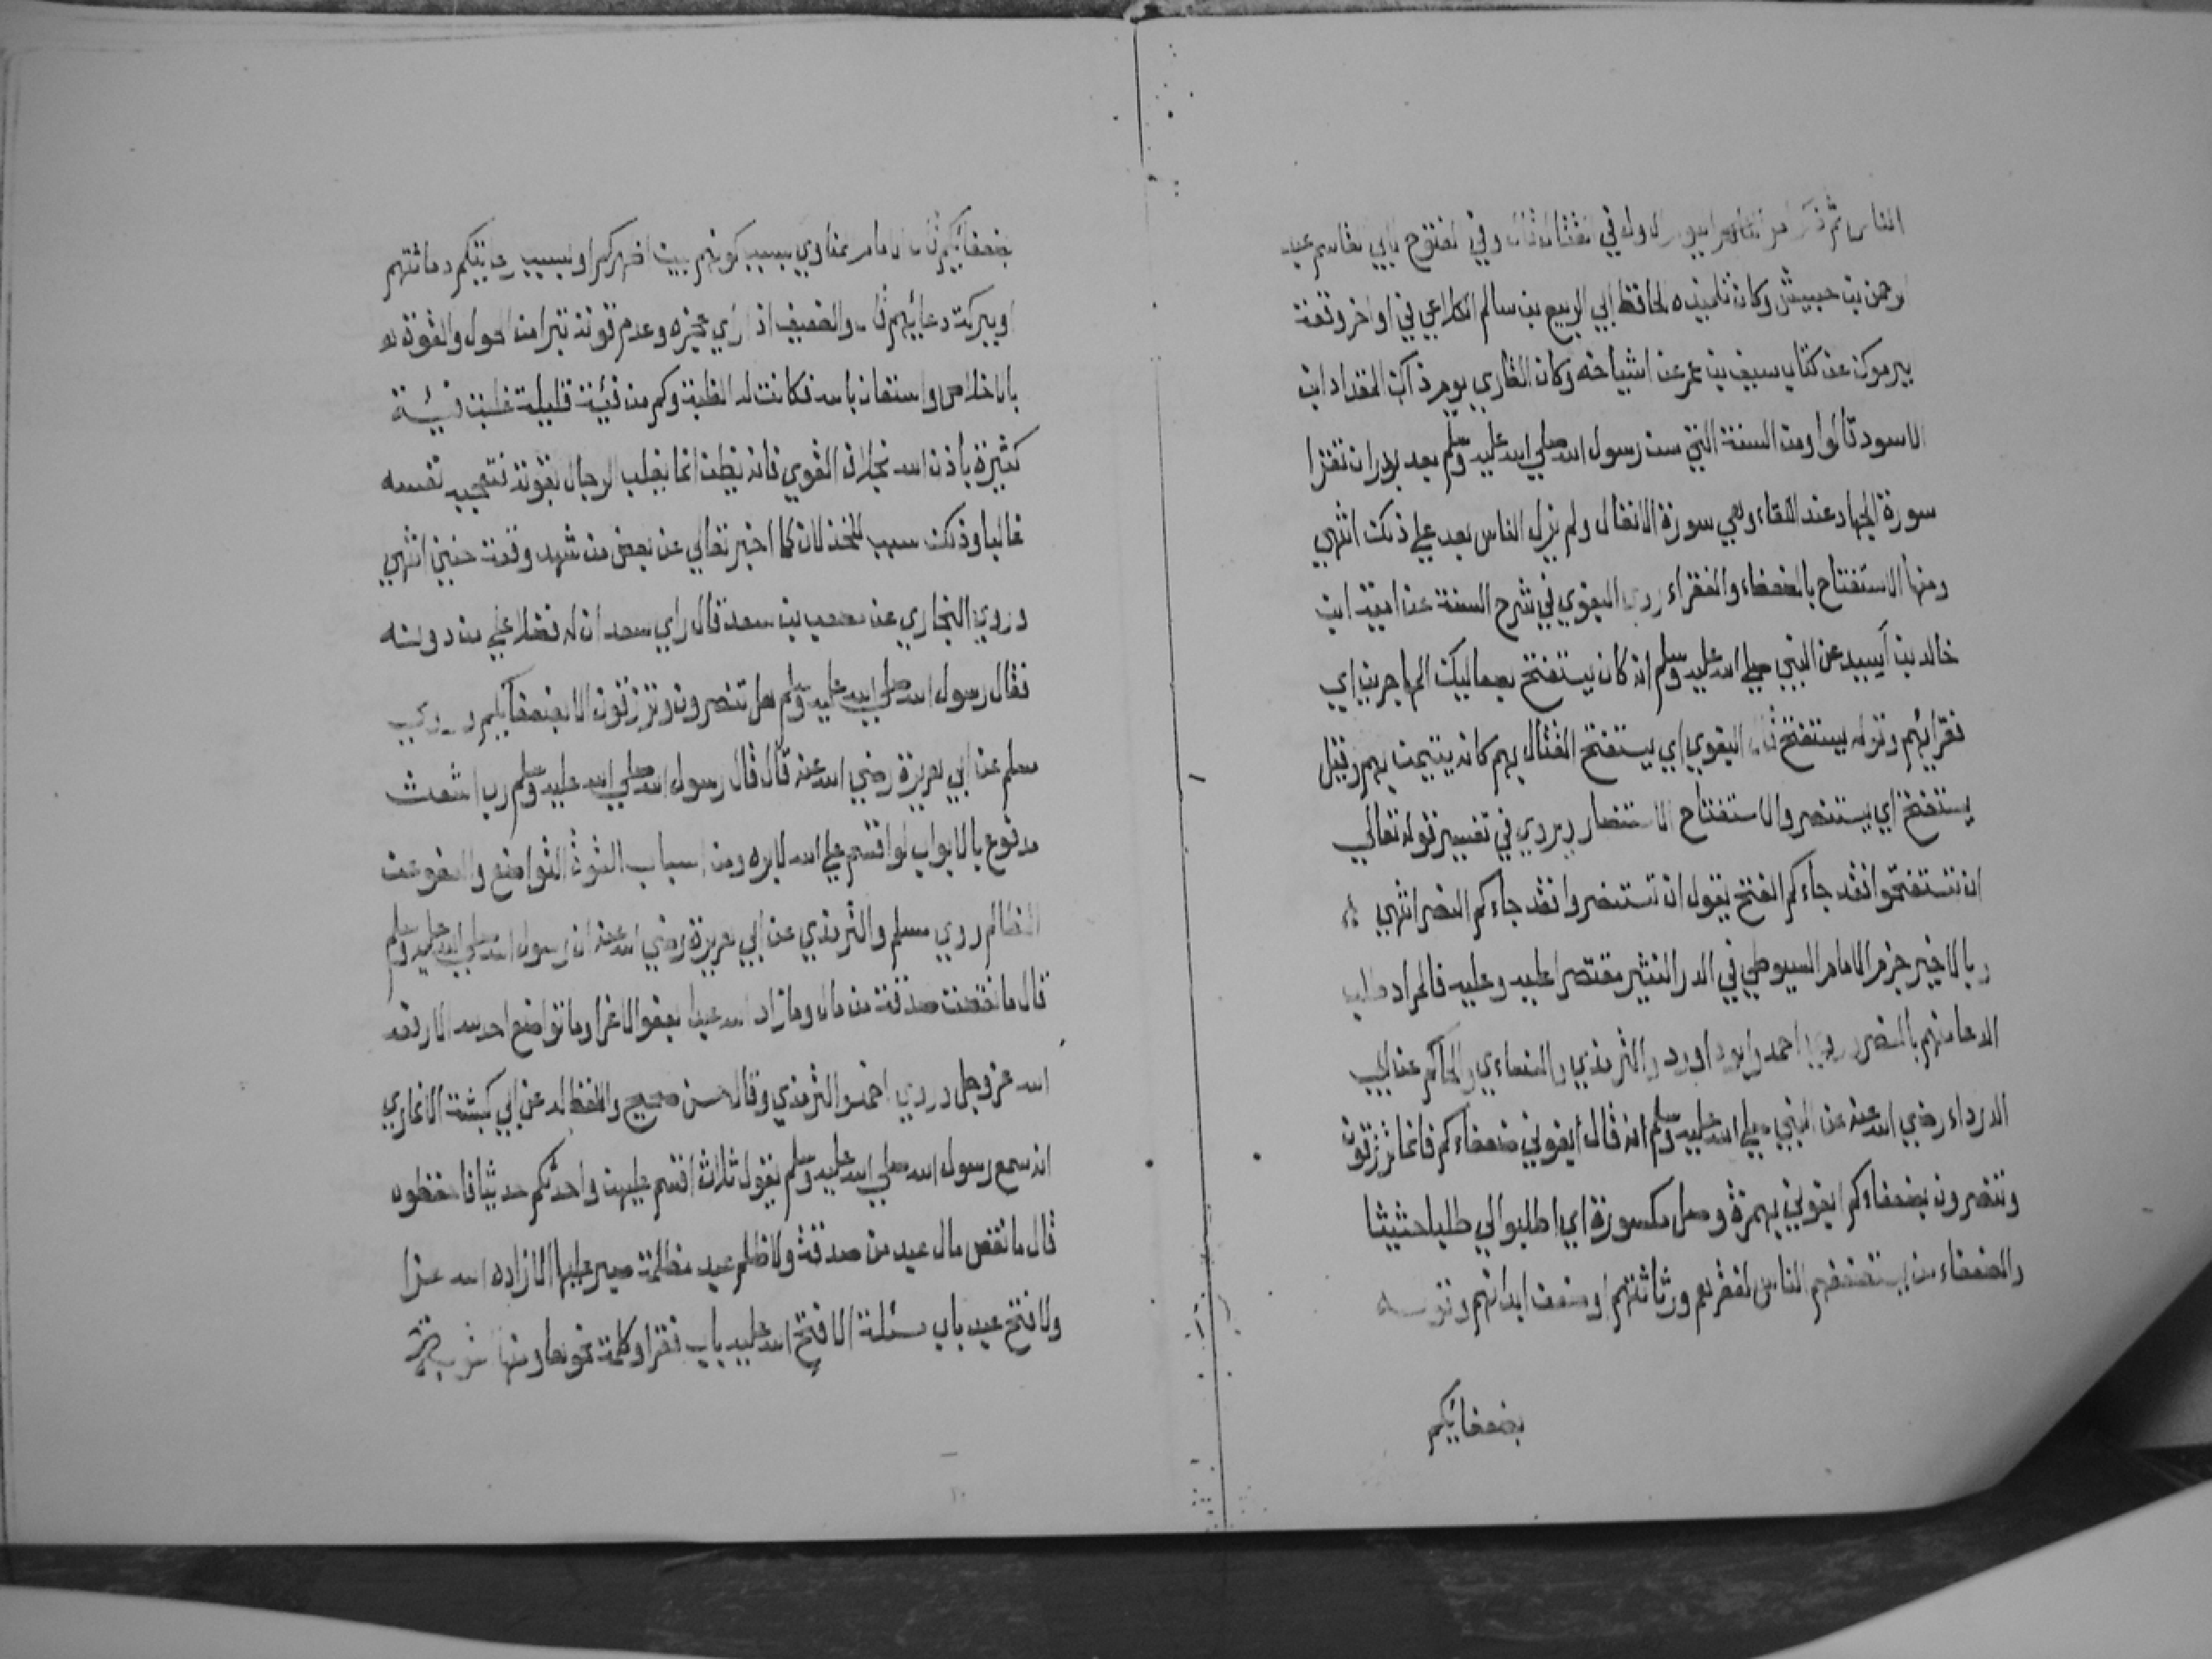 الناس ثم ذكر من وفي الفتوح لابي القاسم عبد
الرحمن بن حبيش وكان تلميذه الحافظ ابي الربيع بن سالم الكلاعي في اواخر وقعة
يرموك عن كتاب سيف بن عمر عن اشياخه وكان القاري يوم ذاك المقداد ابن
الاسود قالوا ومن السنة التي سن رسول الله صلى الله عليه وسلم بعد بدر ان تقرا
سورة الجهاد عند اللقاء وهي سورة الانفال ولم يزل الناس بعد علي ذلك انتهي
ومنها الاستفتاح بالضعفاء والفقراء روي البغوي في شرح السنة عن امية ابن
خالد بن اسيد عن النبي صلي الله عليه وسلم انه كان يستفتح بصعاليك المهاجرين اي
فقرائهم وقوله يستفتح قال البغوي اي يستفتح القتال بهم كانه يتيمن بهم وقيل
يستفتح اي يستنصر والاستفتاح الاستنصار ويروي في تفسير قوله تعالي
ان تستفتحوا فقد جاءكم الفتح يقول ان تستنصروا فقد جاءكم النصر انتهي
وبالاخير جزم الامام السيوطي في الدر النثير مقتصرا عليه وعليه فالمراد طلب
الدعا منهم بالنصر روي احمد وابو داوود والترمذي والنساءي والحاكم عن ابي
الدرداء رضي الله عنه عن النبي صلي الله عليه وسلم انه قال ابغوني ضعفاءكم فانما ترزقون
وتنصرون بضعفاءكم ابغوني بهمزة وصل مكسورة اي اطلبوا لي طلبا حثيثا
والضعفاء من يستضعفهم الناس لفقرهم ورثاثتهم او ضعف ابدانهم وقوله
بضعفائكم
بضعفائكم قال الامام المناوي بسبب كونهم بين اظهركم او بسبب رعايتكم ذمامهم
او ببركة دعائهم قال والضعيف اذا راي عجزه وعدم قوته تبرا من الحول والقوة
باخلاص واستعان بالله فكانت له الغلبة وكم من فئية قليلة غلبت فئية
كثيرة باذن الله بخلاف القوي فانه يظن انما يغلب الرجال بقوته فتعجبه نفسه
غالبا وذلك سبب للخذلان كما اخبر تعالي عن بعض من شهد وقعة حنين انتهي
وروي البخاري عن مصعب بن سعد قال راي سعد ان له فضلا علي من دونه
فقال رسول الله صلي الله عليه وسلم هل تنصرون وترزقون الا بضعفائكم وروي
مسلم عن ابي هريرة رضي الله عنه قال قال رسول الله صلي الله عليه وسلم رب اشعث
مدفوع بالابواب لو اقسم علي الله لابره ومن اسباب القوة التواضع والعفو عن
الظالم روي مسلم والترمذي عن ابي هريرة رضي الله عنه ان رسول الله صلي الله عليه وسلم
قال ما نقصت صدقة من مال وما زاد الله عبدا بعفو الا عزا وما تواضع احد لله الا رفعه
الله عز وجل وروي احمد والترمذي وقال حسن صحيح واللفظ له عن ابي كبشة الانماري
انه سمع رسول الله صلي الله عليه وسلم يقول ثلاثة اقسم عليهن واحدثكم حديثا فاحفظوه
قال ما نقص مال عبد من صدقة ولا ظلم عبد مظلمة صبر عليها الا زاده الله عزا
ولا فتح عبد باب مسئلة الا فتح الله عليه باب فقر او كلمة نحوها ومنها